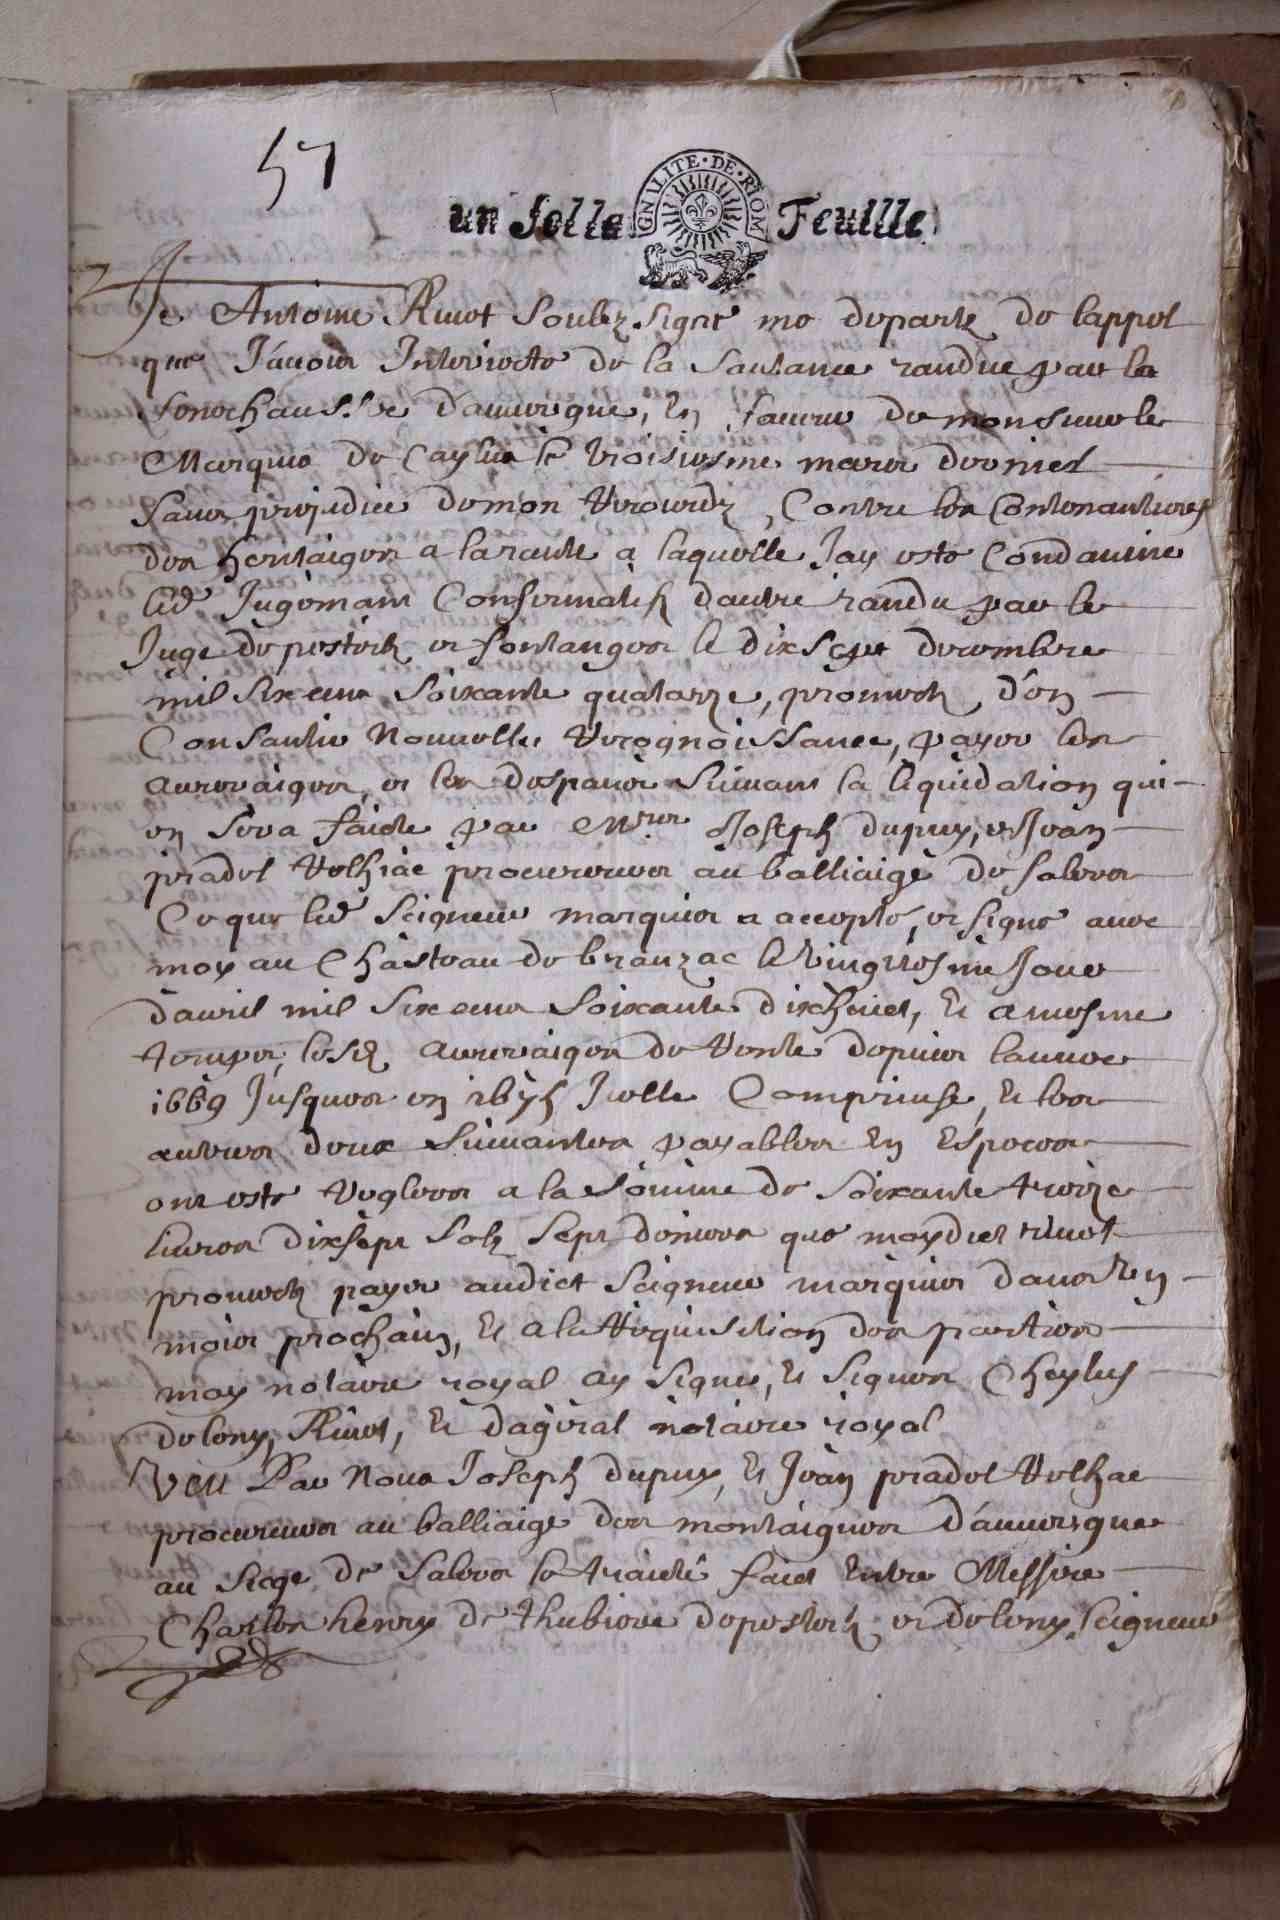 57
un solls Feullle
GNALITE · DE · RIOM
Je Antoine Riuot soubz signé me departz de lappel
que Jauois Interiecte de la santance randue par la
seneschaussee dauuergne, en faueur de monsieur le
Marquis de Caylus le troisiesme mars dernier
sans prejudice de mon recourdz, Contre les Contenanciers
des heritaiges a la rante a laquelle Jay este Condamne
led Jugemant Confirmatif dautre randu par le
Juge de pestelz et fontanges le dixsept decembre
mil six cens soixante quatorze, prometz d'en
Consantir nouuelle recognoissance, payer les
arreraiges, et les despans suiuant la liquidation qui
en sera faicte par Mrs Joseph dupuy, et Jean
pradel relhiac procureurs au balliaige de salers
Ce que led Seigneur marquis a accepte, et signe auec
moy au Chasteau de branzac le vingtiesme Jour
dauril mil six cens soixante dixhuict, Et a mesme
temps, lesd arreraiges de rente depuis lannee
1669 Jusques en 1675 Icelle Comprinse, Et les
autres deux suiuantes payables En Especes
ont este regleez a la somme de soixante treize
liures dixsept solz sept deniers que moydict riuot
prometz payer audict Seigneur marquis dans un
mois prochain, Et a la requisition des parties
moy notaire royal ay signe, Et signes Cheylus
de leuy, Riuot, Et dagiral notaire royal
Veu Par Nous Joseph dupuy, Et Jean pradel relhac
procureurs au balliaige des montaignes d'auuergne
au siege de salers le traicté faict Entre Messire
Charles henry de thubiere de pestelz et de leuy, seigneur